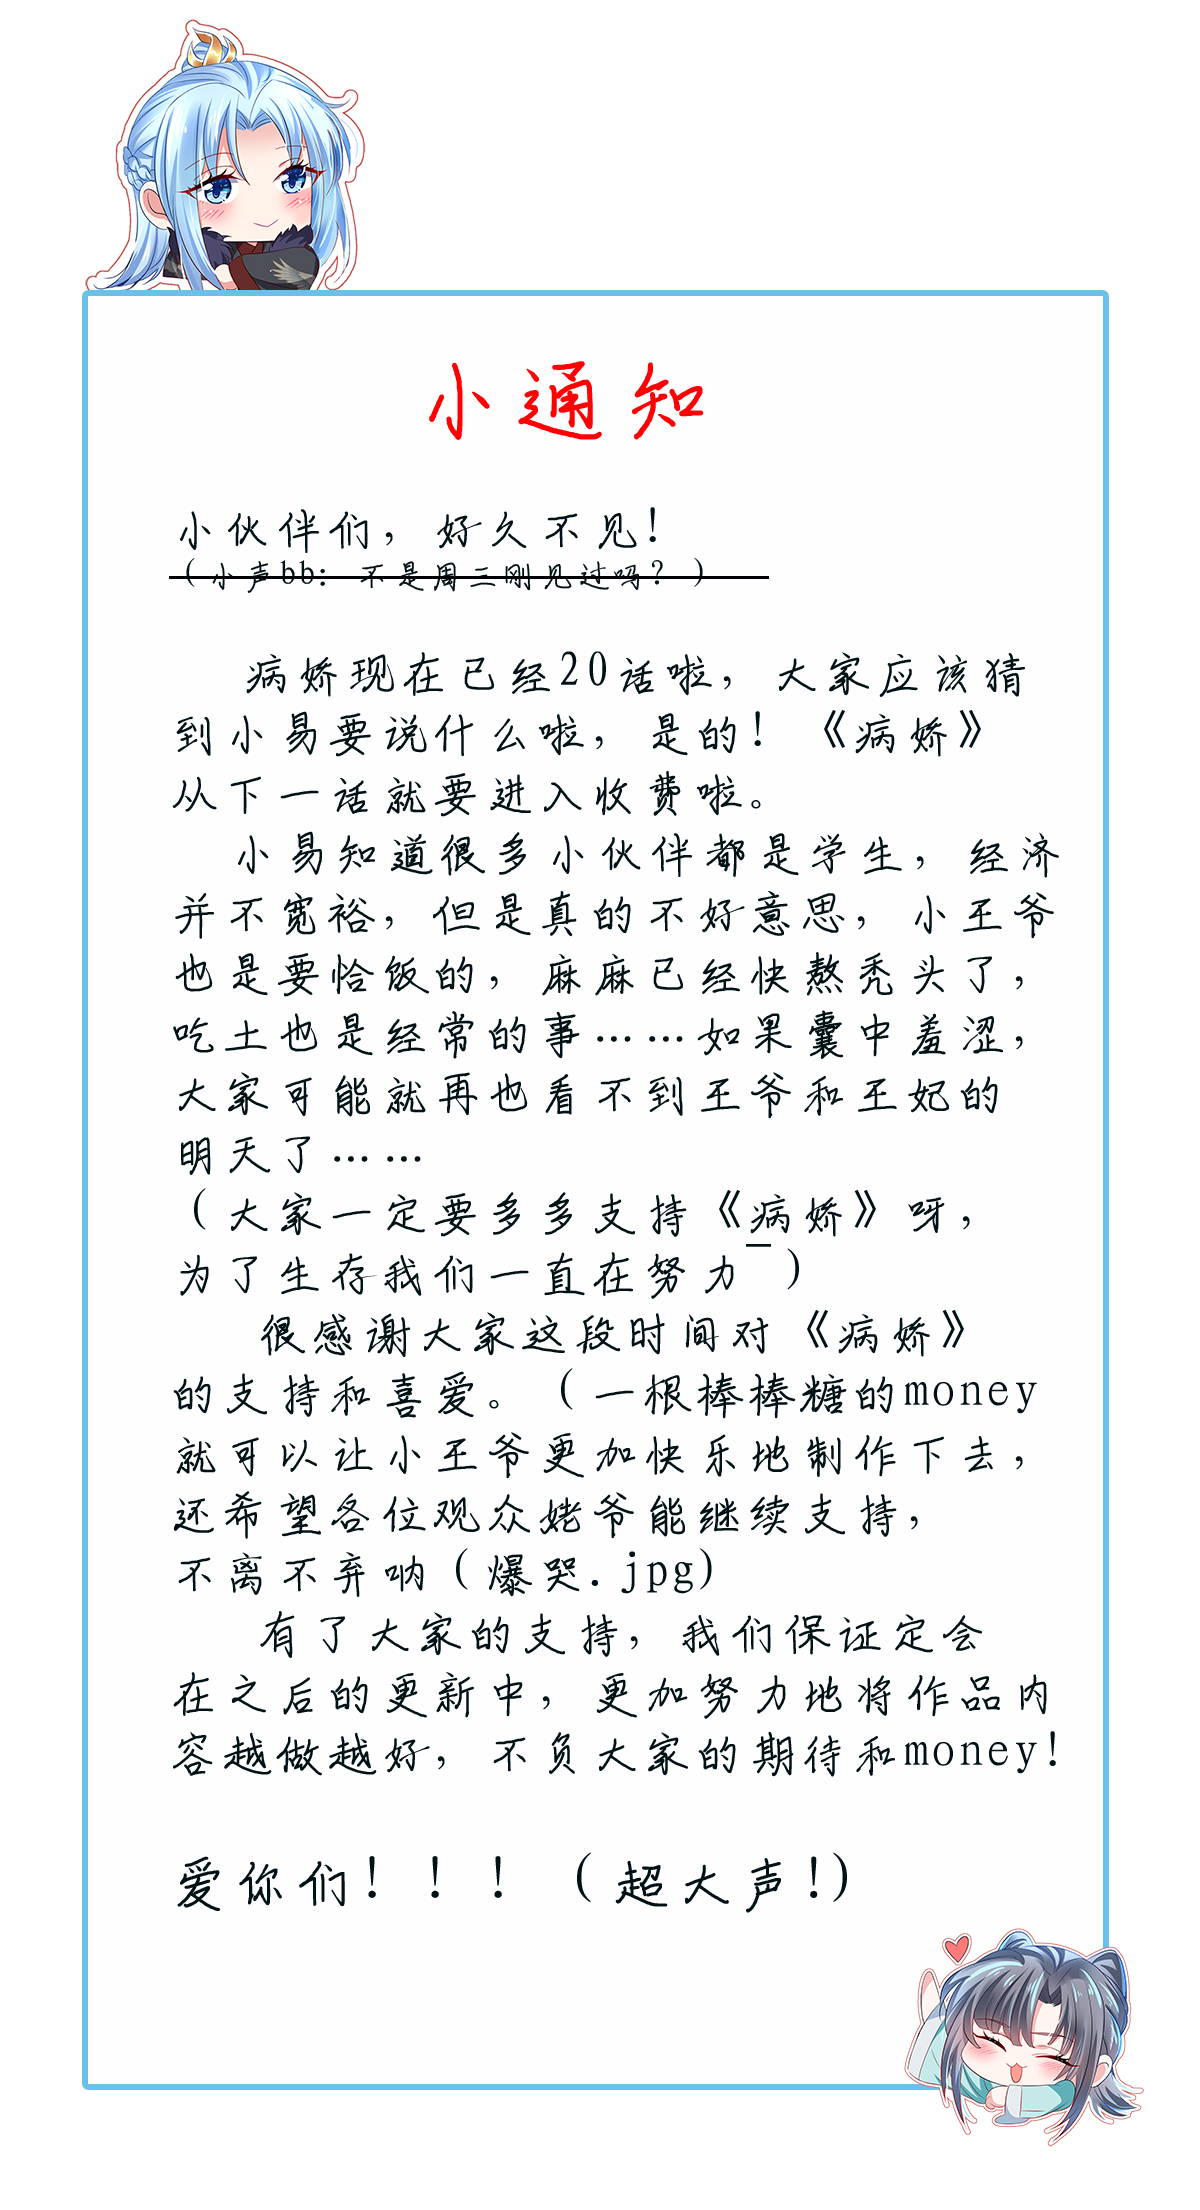 小通知
小伙伴们，好久不见！
（小声bb：不是周三刚见过吗？）
病娇现在已经20话啦，大家应该猜
到小易要说什么啦，是的！《病娇》
从下一话就要进入收费啦。
小易知道很多小伙伴都是学生，经济
并不宽裕，但是真的不好意思，小王爷
也是要恰饭的，麻麻已经快熬秃头了，
吃土也是经常的事……如果囊中羞涩，
大家可能就再也看不到王爷和王妃的
明天了……
（大家一定要多多支持《病娇》呀，
为了生存我们一直在努力¯）
很感谢大家这段时间对《病娇》
的支持和喜爱。（一根棒棒糖的money
就可以让小王爷更加快乐地制作下去，
还希望各位观众姥爷能继续支持，
不离不弃呐（爆哭.jpg)
有了大家的支持，我们保证定会
在之后的更新中，更加努力地将作品内
容越做越好，不负大家的期待和money!
爱你们！！！（超大声!)